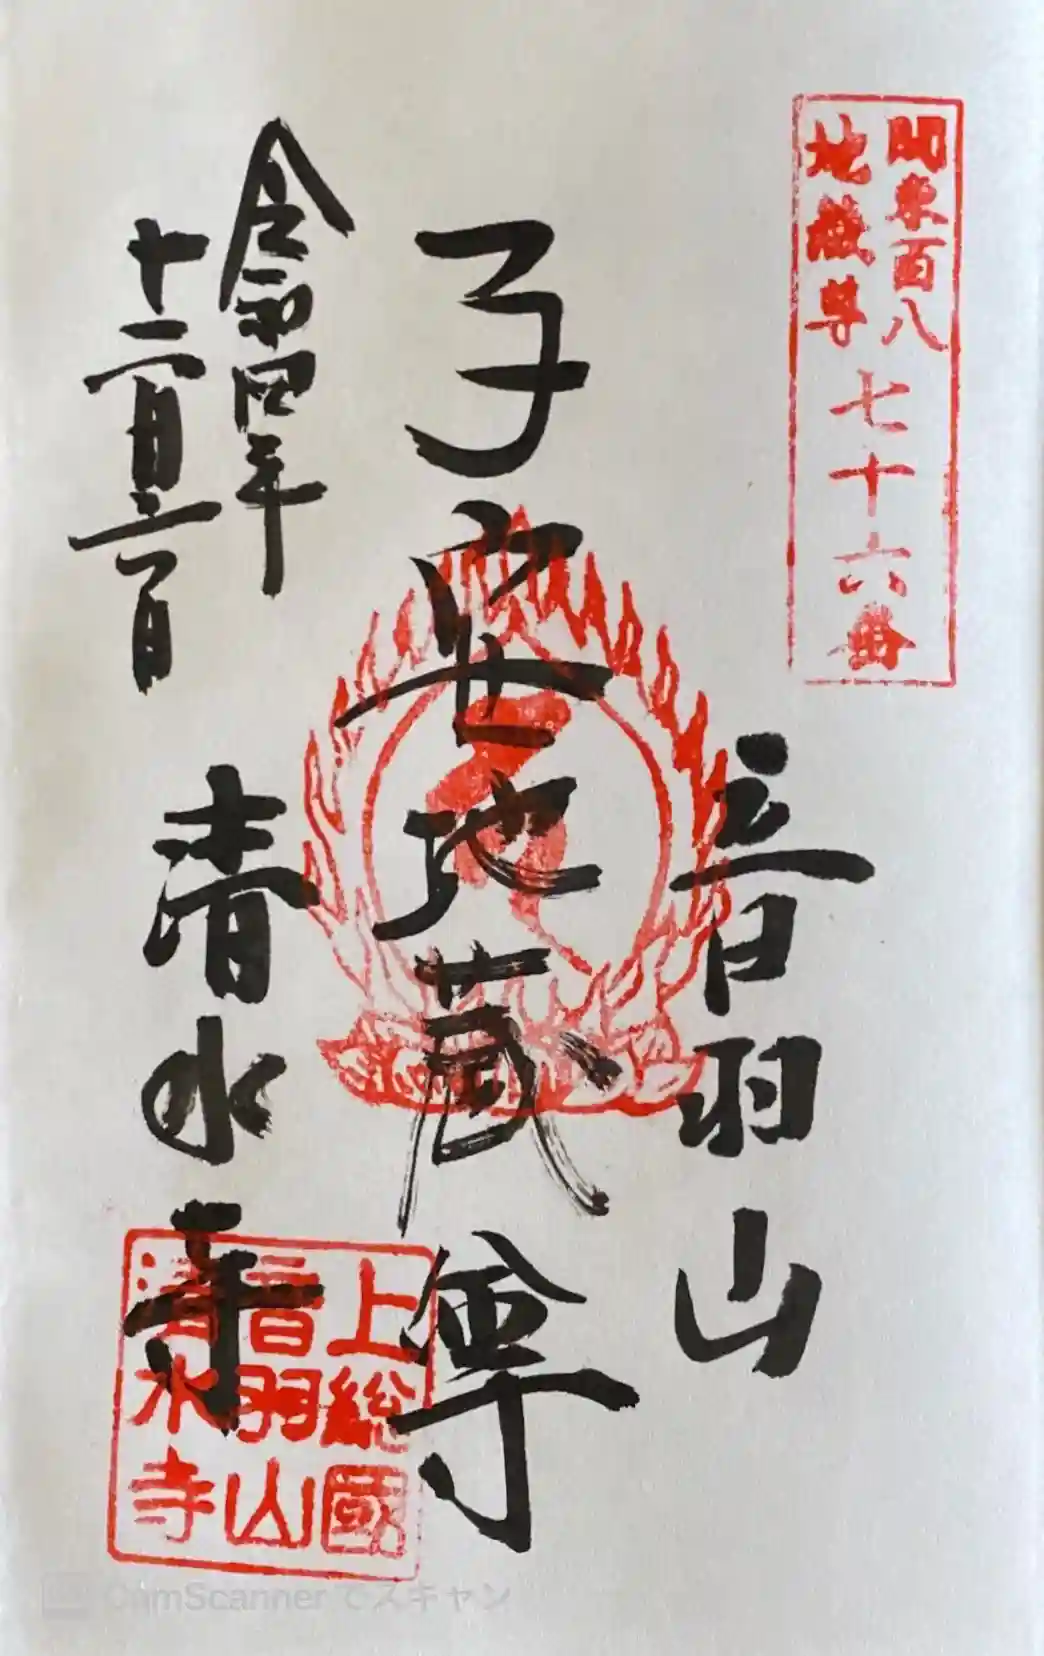 関東百八
地蔵尊
七十六番
音羽山
子安地蔵尊
令和四年
十二月日
清水寺
上総國
音羽山
清水寺
CamScanner でスキャン